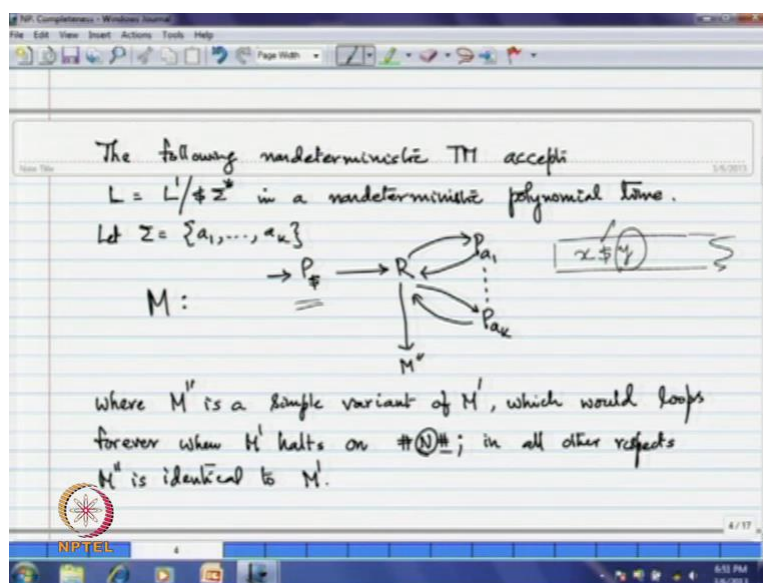 NP. Completeness - Windows Journal
File Edit View Insert Actions Tools Help
Page Width
Note Title
The following nondeterministic TM accepts
5/6/2013
L = L'/$Σ* in a nondeterministic polynomial time.
Let Σ = {a₁, ..., aₖ}
M : → P$ → R
Pa₁
Paₖ
M''
x $ y
where M'' is a simple variant of M', which would loops
forever when M' halts on #Ⓝ#; in all other respects
M'' is identical to M'.
4/17
NPTEL
4
6:51 PM
5/6/2013